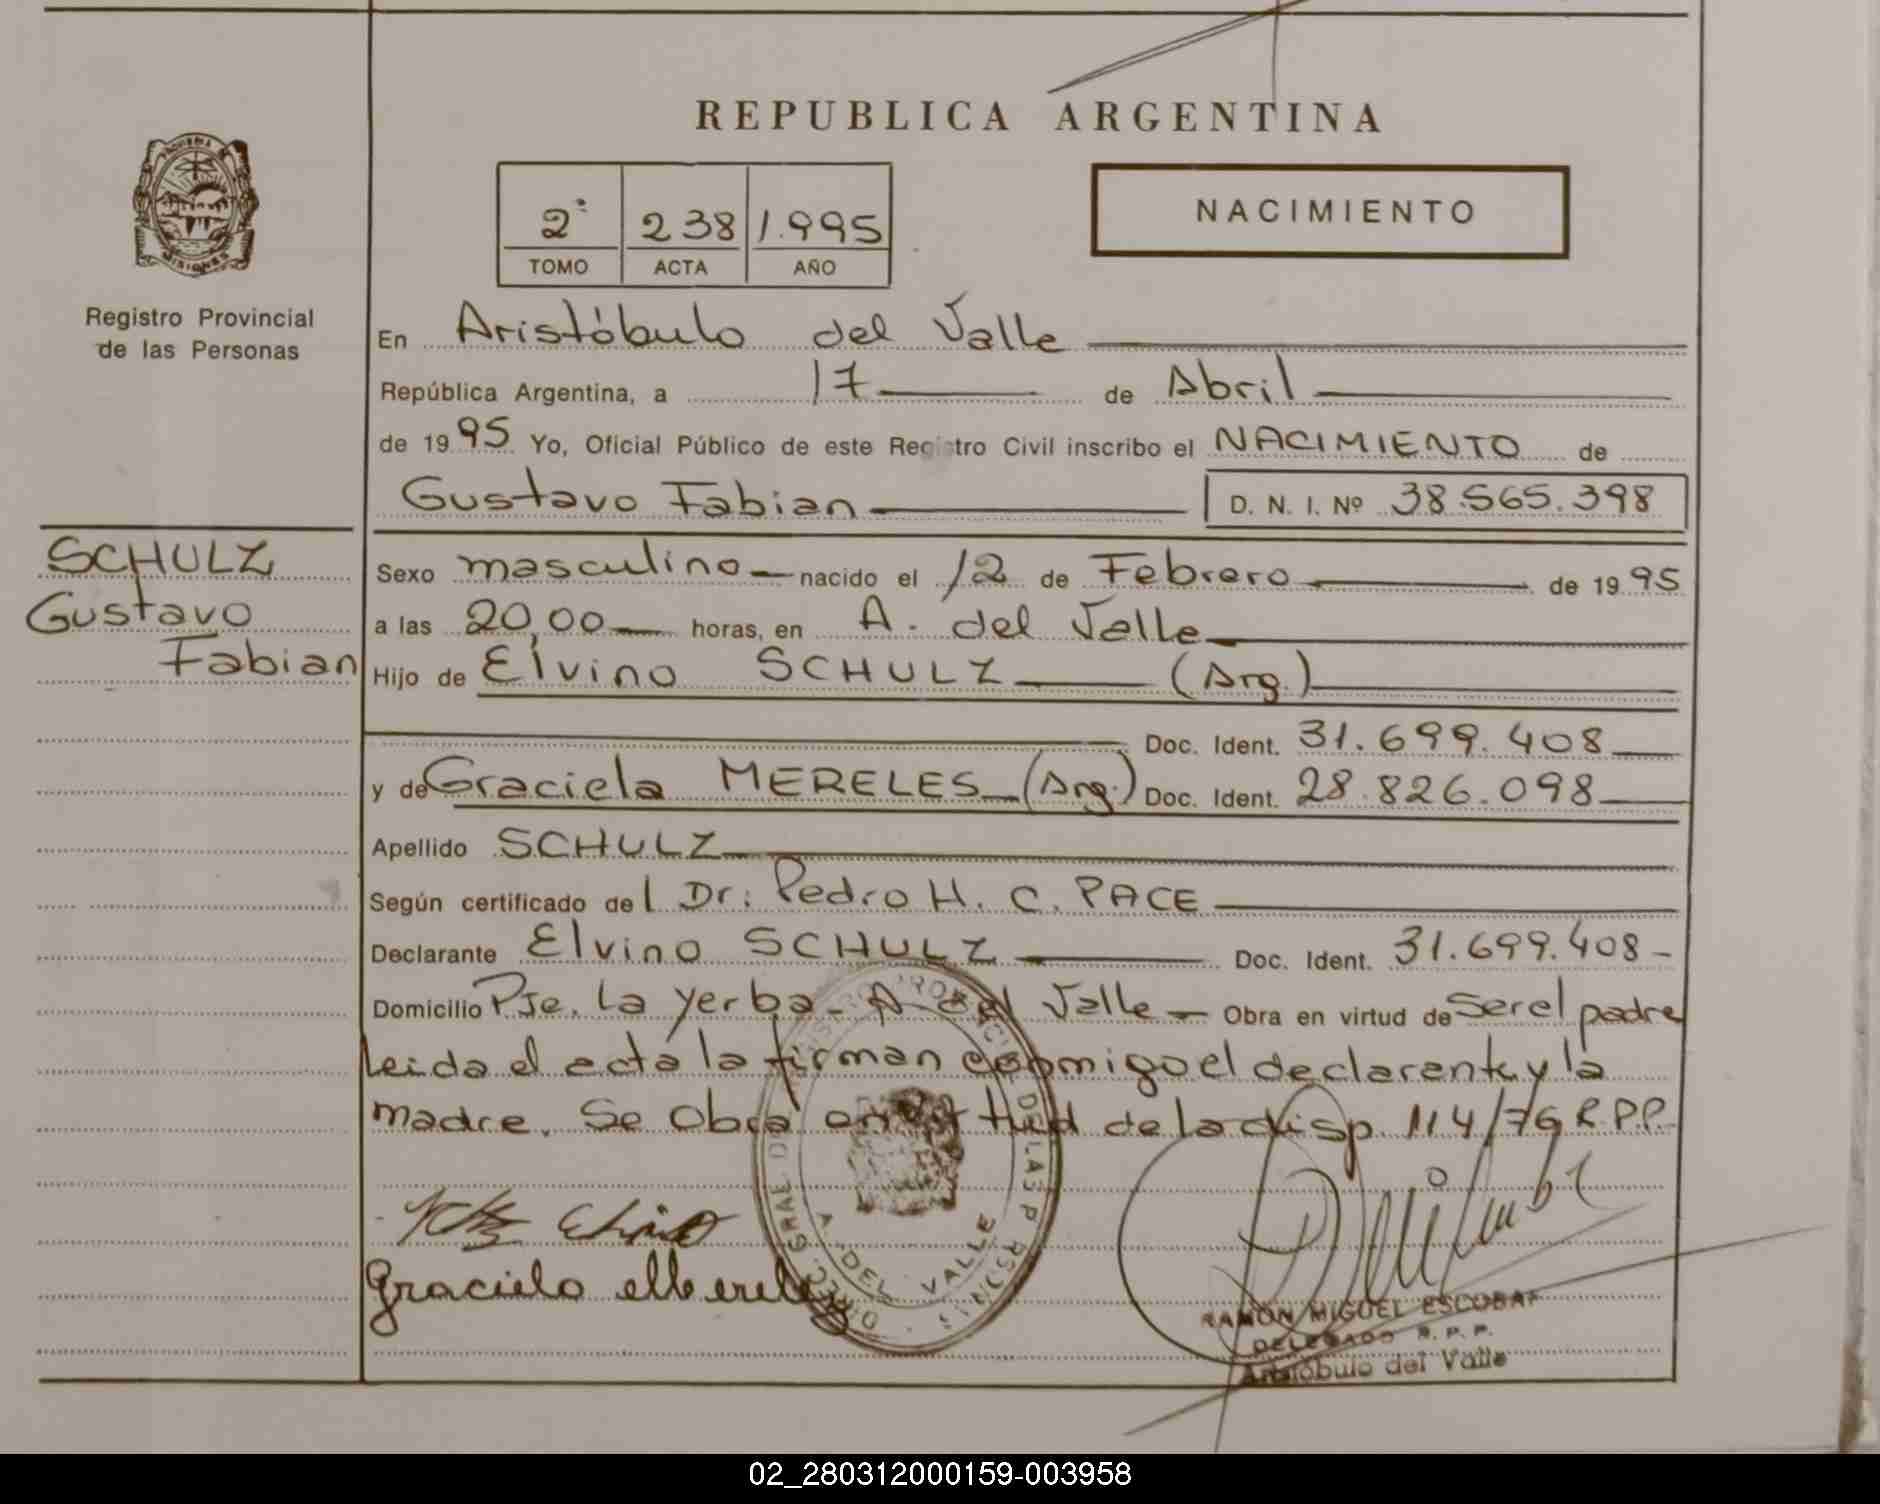 REPUBLICA ARGENTINA
2º 238 1.995
TOMO ACTA AÑO
NACIMIENTO
PROVINCIA DE MISIONES
Registro Provincial
de las Personas
En Aristóbulo del Valle
República Argentina, a 17 de Abril
de 1995 Yo, Oficial Público de este Registro Civil inscribo el NACIMIENTO de
Gustavo Fabian D. N. I. Nº 38.565.398
SCHULZ
Gustavo
Fabian
Sexo masculino nacido el 12 de Febrero de 1995
a las 20,00 horas, en A. del Valle
Hijo de Elvino SCHULZ (Arg.)
Doc. Ident. 31.699.408
y de Graciela MERELES (Arg.) Doc. Ident. 28.826.098
Apellido SCHULZ
Según certificado del Dr: Pedro H. C. PACE
Declarante Elvino SCHULZ Doc. Ident. 31.699.408-
Domicilio Pje. La Yerba - A del Valle - Obra en virtud de Ser el padre
Leida el acta la firman conmigo el declarante y la
madre. Se Obra en virtud de la disp. 114/76 R.P.P.
A. DEL VALLE
RAMON MIGUEL ESCOBAR
DELEGADO R. P. P.
Aristóbulo del Valle
02_280312000159-003958